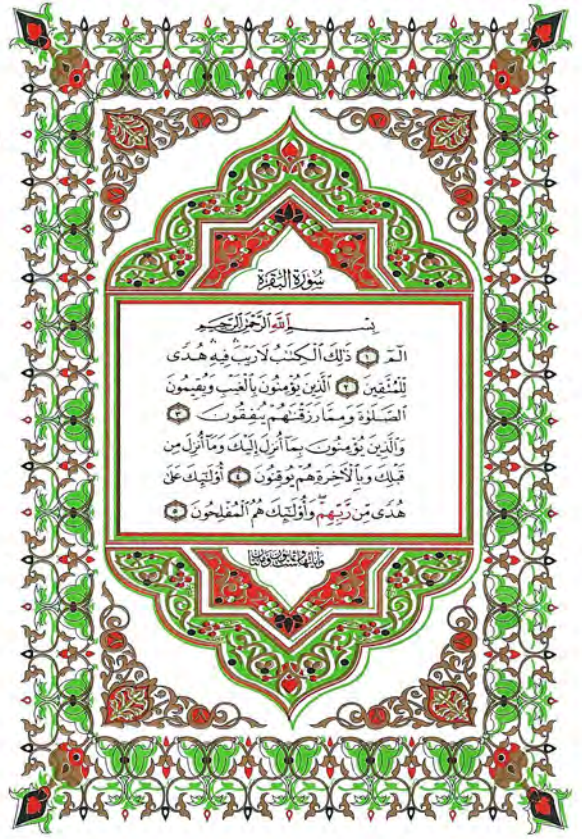 سُورَةُ البَقَرَةِ
بِسْمِ ٱللَّهِ ٱلرَّحْمَٰنِ ٱلرَّحِيمِ
الٓمٓ ١ ذَٰلِكَ ٱلْكِتَٰبُ لَا رَيْبَ ۛ فِيهِ ۛ هُدًى
لِّلْمُتَّقِينَ ٢ ٱلَّذِينَ يُؤْمِنُونَ بِٱلْغَيْبِ وَيُقِيمُونَ
ٱلصَّلَوٰةَ وَمِمَّا رَزَقْنَٰهُمْ يُنفِقُونَ ٣
وَٱلَّذِينَ يُؤْمِنُونَ بِمَآ أُنزِلَ إِلَيْكَ وَمَآ أُنزِلَ مِن
قَبْلِكَ وَبِٱلْءَاخِرَةِ هُمْ يُوقِنُونَ ٤ أُو۟لَٰٓئِكَ عَلَىٰ
هُدًى مِّن رَّبِّهِمْ ۖ وَأُو۟لَٰٓئِكَ هُمُ ٱلْمُفْلِحُونَ ٥
وَآيَاتُهَا وَثَمَانُونَ وَمِائَتَانِ